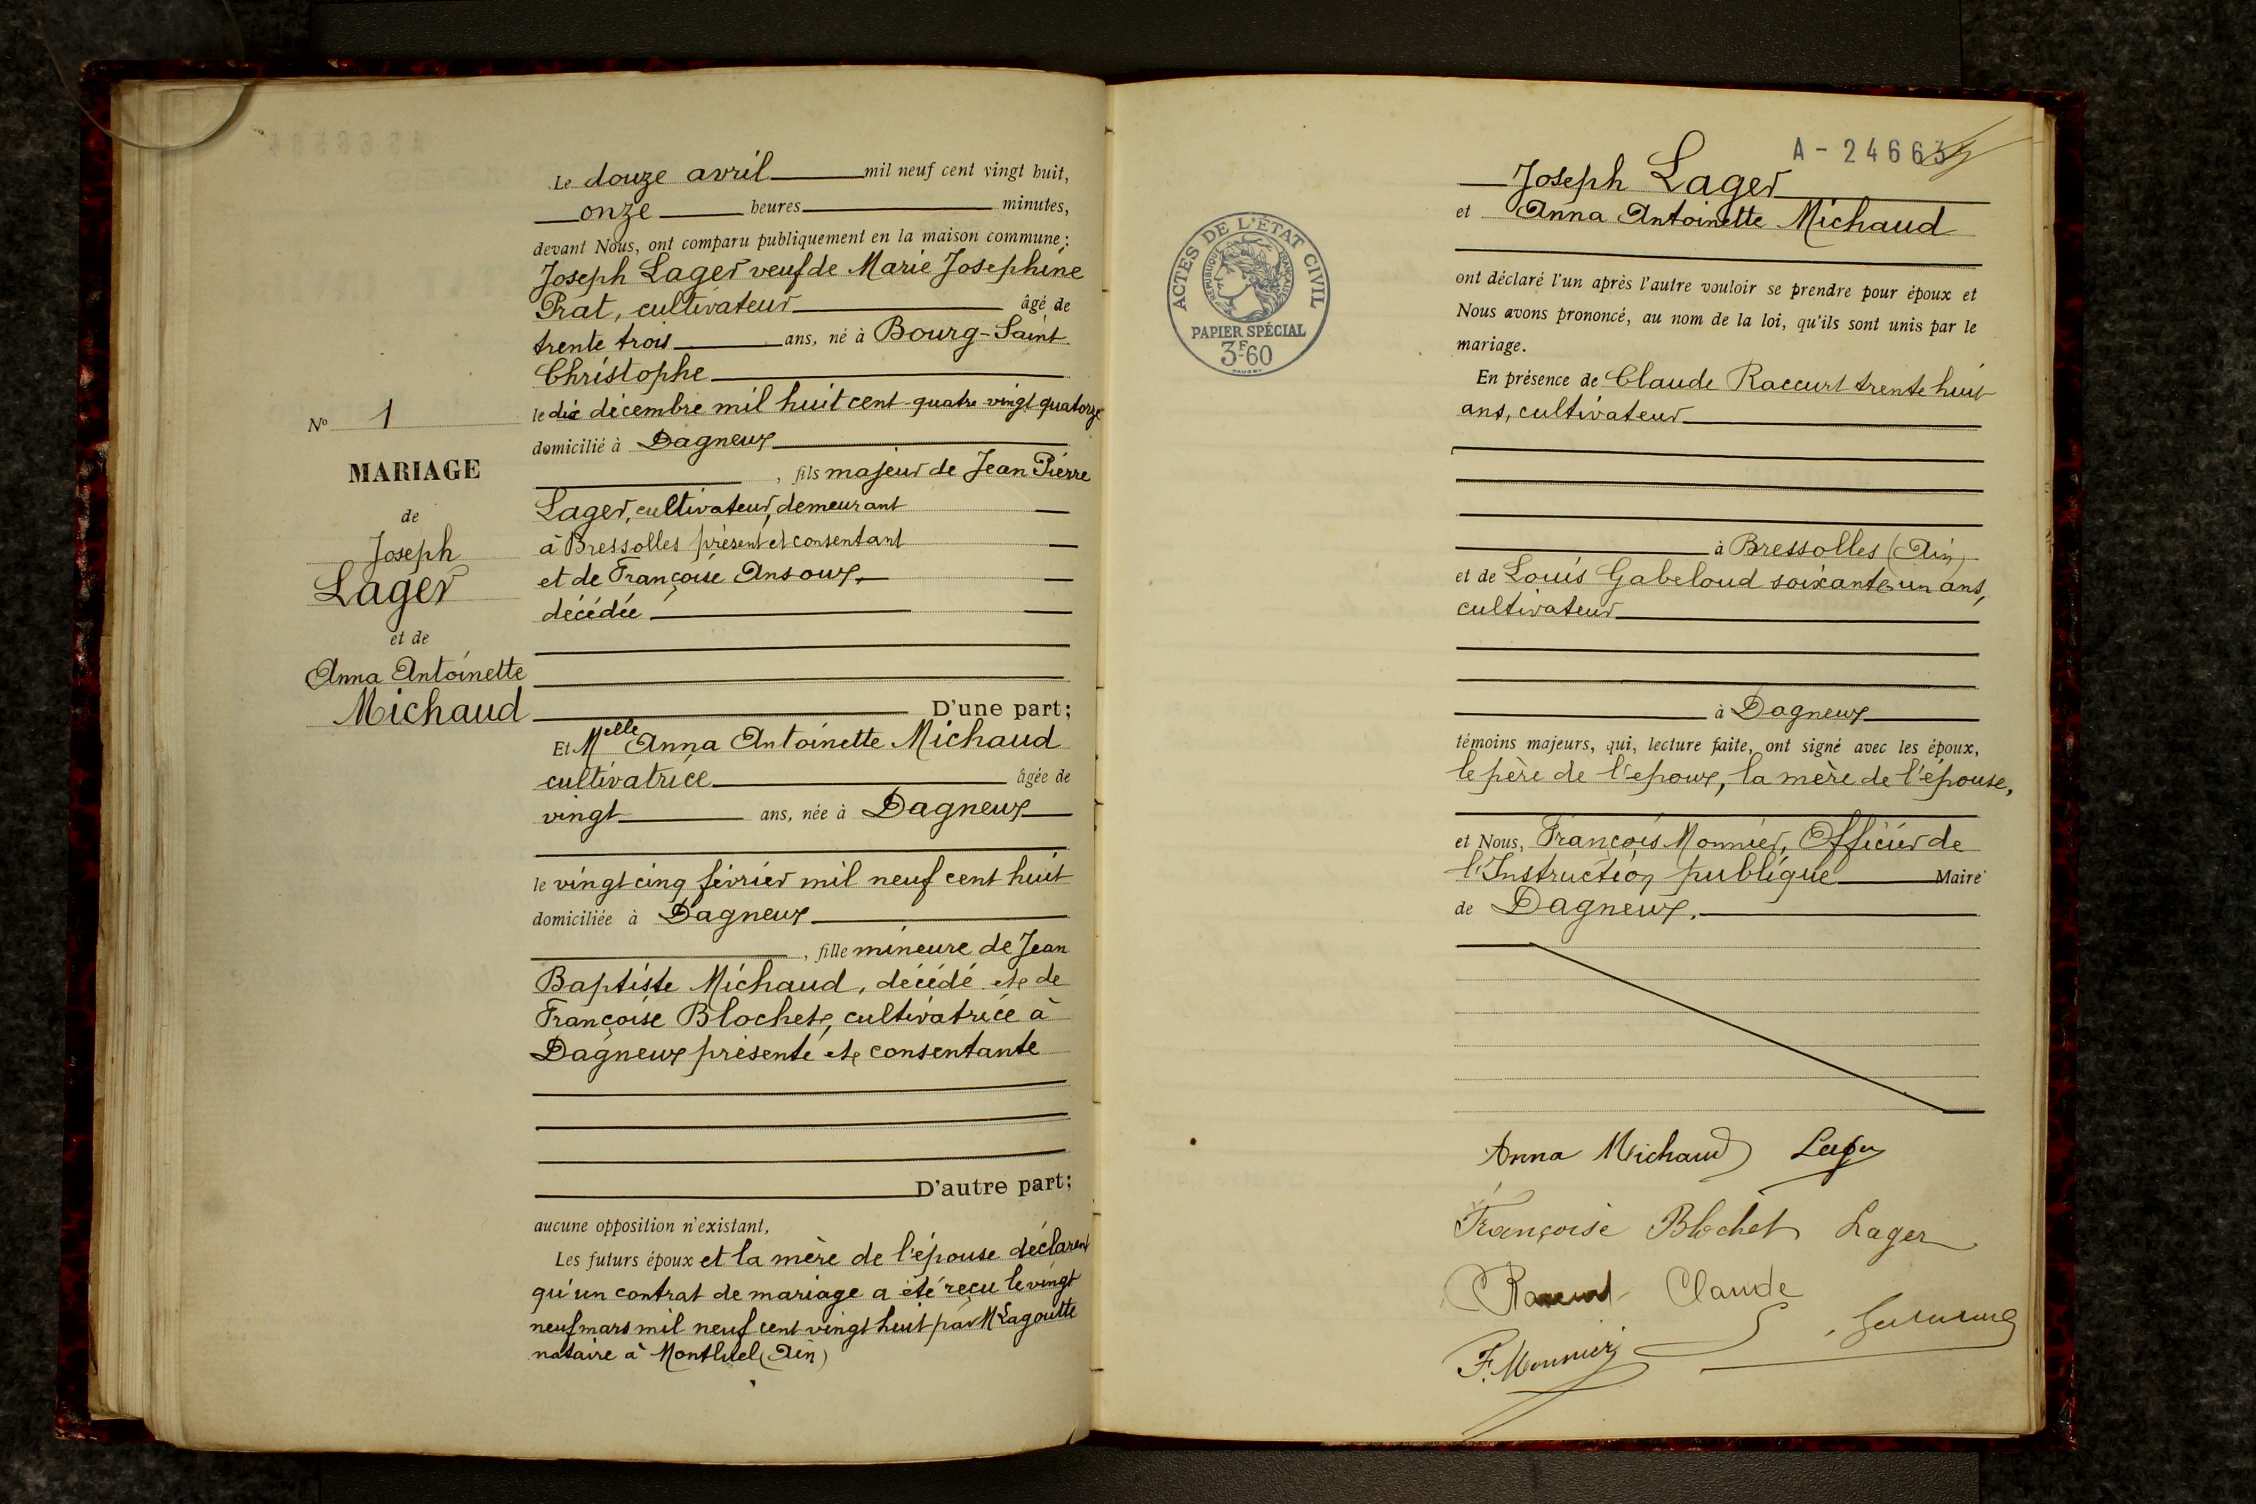 Le douze avril mil neuf cent vingt huit,
onze heures minutes,
devant Nous, ont comparu publiquement en la maison commune ;
Joseph Lager veuf de Marie Josephine
Prat, cultivateur âgé de
trente trois ans, né à Bourg-Saint
Christophe
le dix décembre mil huit cent quatre vingt quatorze
domicilié à Dagneux
, fils majeur de Jean Pierre
Lager, cultivateur, demeurant
à Bressolles présent et consentant
et de Françoise Ansoux,
décédée
D'une part ;
Et Melle Anna Antoinette Michaud
cultivatrice âgée de
vingt ans, née à Dagneux
le vingt cinq février mil neuf cent huit
domiciliée à Dagneux
, fille mineure de Jean
Baptiste Michaud, décédé et de
Françoise Blochet, cultivatrice à
Dagneux présente et consentante
D'autre part ;
aucune opposition n'existant,
Les futurs époux et la mère de l'épouse déclarent
qu'un contrat de mariage a été reçu le vingt
neuf mars mil neuf cent vingt huit par M Lagoutte
notaire à Montluel (Ain)
No 1
MARIAGE
de
Joseph
Lager
et de
Anna Antoinette
Michaud
A - 24663
ACTES DE L'ÉTAT CIVIL
RÉPUBLIQUE FRANÇAISE
PAPIER SPÉCIAL
3F60
Joseph Lager
et Anna Antoinette Michaud
ont déclaré l'un après l'autre vouloir se prendre pour époux et
Nous avons prononcé, au nom de la loi, qu'ils sont unis par le
mariage.
En présence de Claude Raccurt trente huit
ans, cultivateur
à Bressolles (Ain)
et de Louis Gabeloud soixante un ans,
cultivateur
à Dagneux
témoins majeurs, qui, lecture faite, ont signé avec les époux,
le père de l'epoux, la mère de l'épouse,
et Nous, François Monnier, Officier de
l'Instruction publique Maire
de Dagneux.
Anna Michaud Lager
Françoise Blochet Lager
Raccurt Claude
F. Monnier